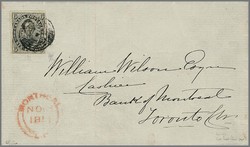 William Wilson Esqre
Cashier
Bank of Montreal
Toronto
MONTREAL
NO
181